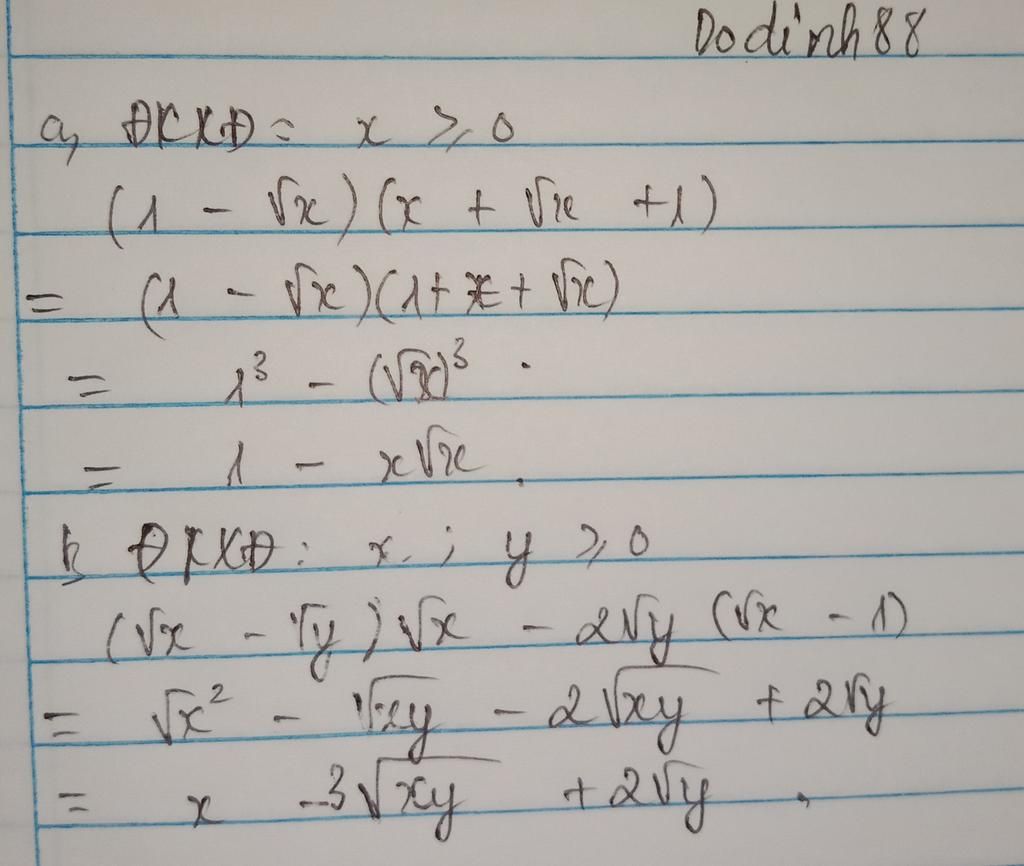 Dodinh88
a, ĐKXĐ = x ≥ 0
(1 - √x)(x + √x + 1)
= (1 - √x)(1 + x + √x)
= 1³ - (√x)³ .
= 1 - x√x .
b, ĐKXĐ : x ; y ≥ 0
(√x - √y)√x - 2√y (√x - 1)
= √x² - √xy - 2√xy + 2√y
= x - 3√xy + 2√y .